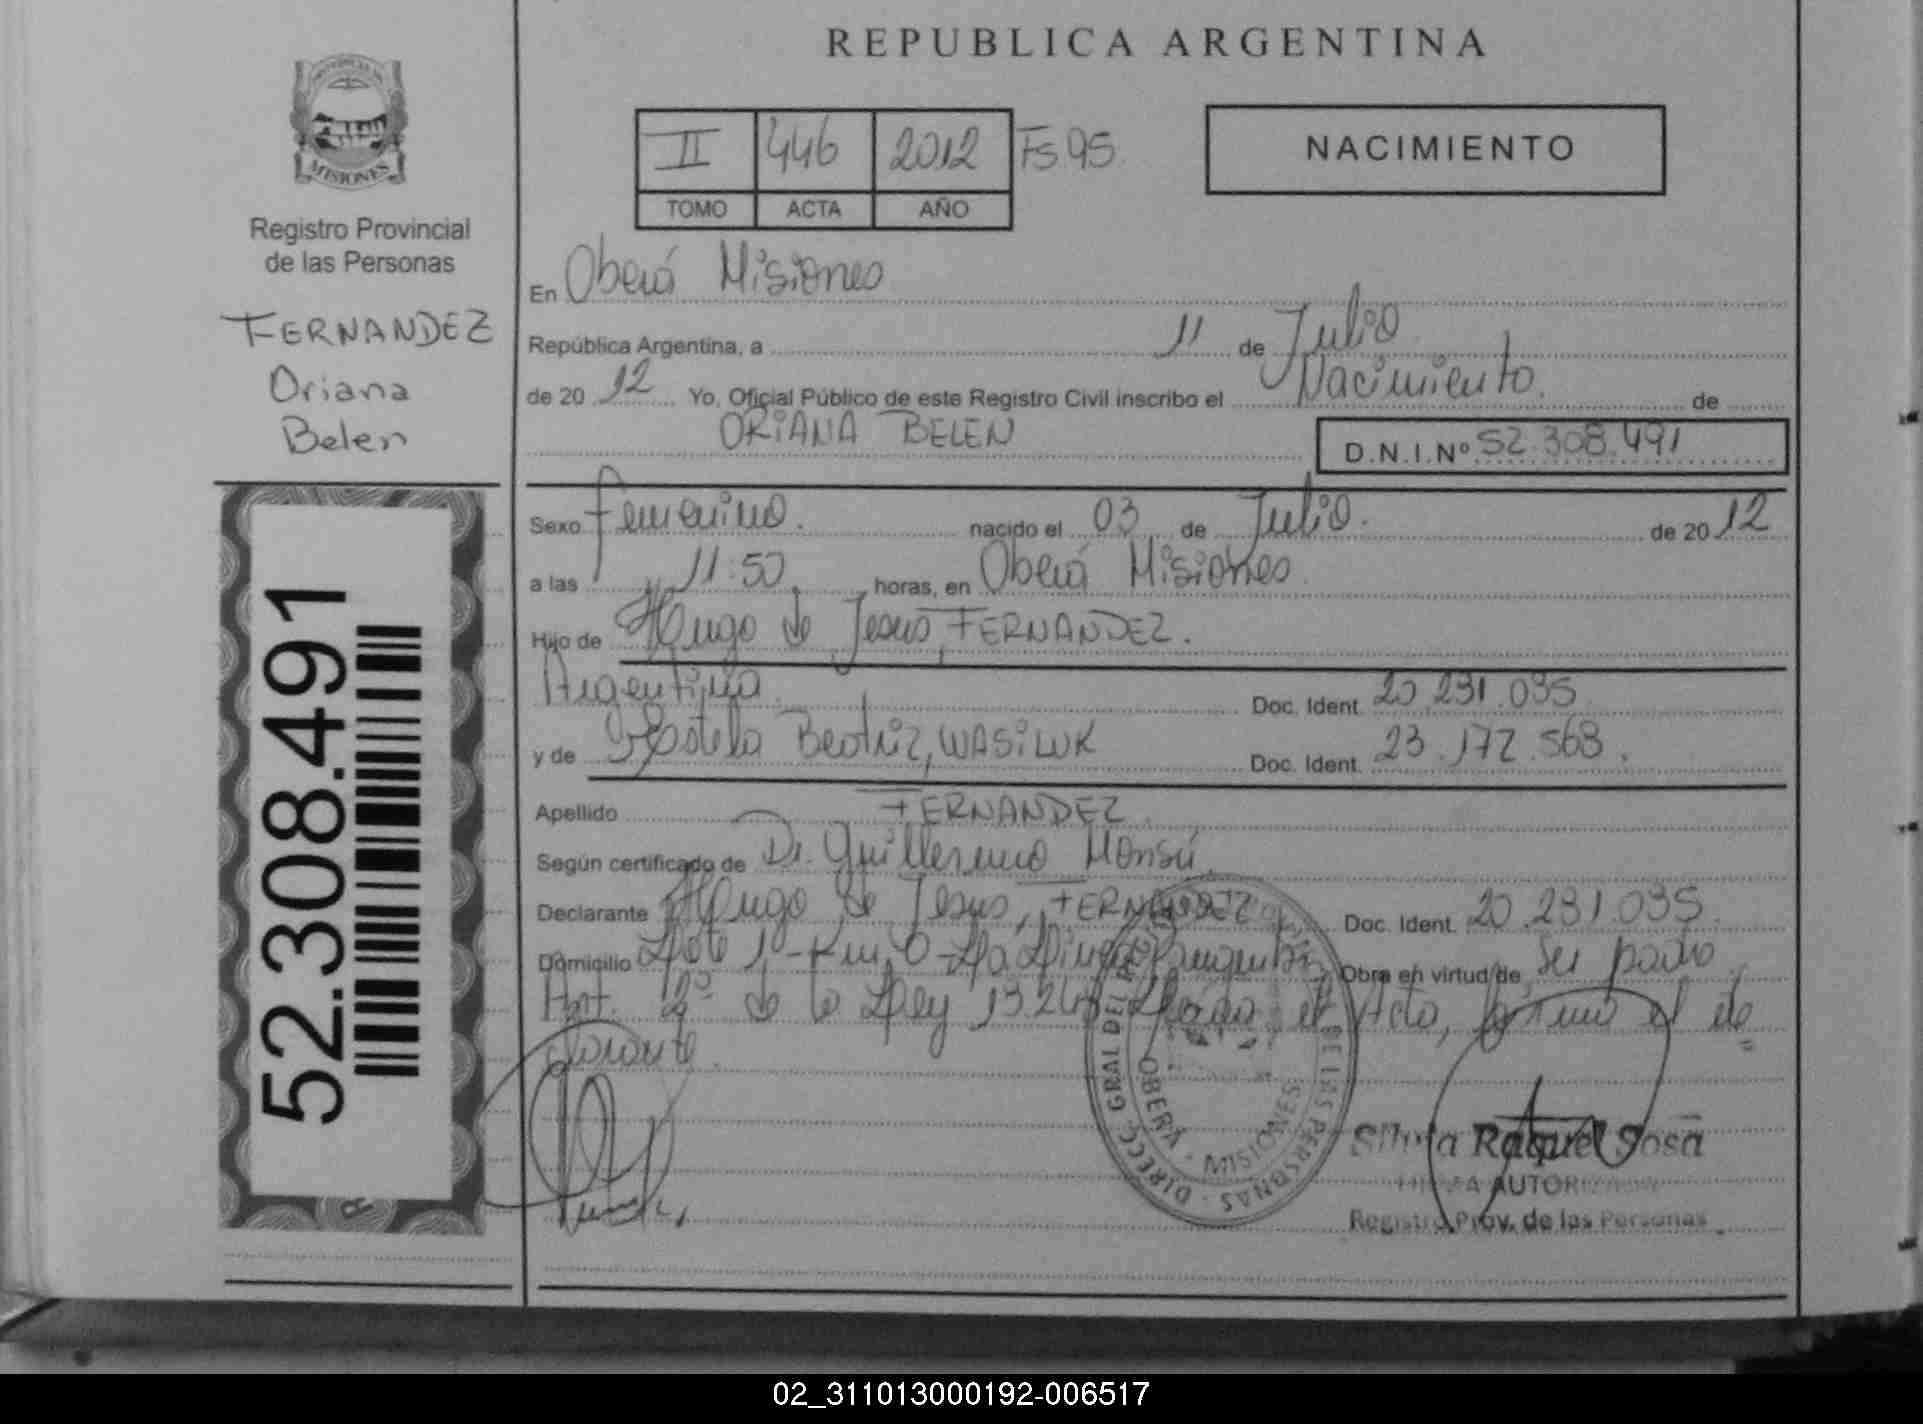 REPUBLICA ARGENTINA
PROVINCIA DE
MISIONES
Registro Provincial
de las Personas
FERNANDEZ
Oriana
Belen
52.308.491
II 446 2012 Fs 95
TOMO ACTA AÑO
NACIMIENTO
En Oberá Misiones
República Argentina, a 11 de Julio
de 20 12 Yo, Oficial Público de este Registro Civil inscribo el Nacimiento. de
ORIANA BELEN D.N.I.Nº 52.308.491
Sexo Femenino. nacido el 03 de Julio. de 20 12
a las 11:50 horas, en Oberá Misiones.
Hijo de Hugo de Jesus, FERNANDEZ.
Argentina. Doc. Ident. 20.231.035
y de Estela Beatriz, WASiLUK Doc. Ident. 23.172.568.
Apellido FERNANDEZ
Según certificado de Dr. Guillermo Monsú.
Declarante Hugo de Jesus, FERNANDEZ Doc. Ident. 20.231.035.
Domicilio Lote 1 - Km. 0 - Obra en virtud de, ser padre
Art. 2º de la Ley 13.24 el Acta, firma el de
clarante.
DIRECC. GRAL DEL DE LAS PERSONAS
OBERÁ - MISIONES
Silvia Raquel Sosa
FIRMA AUTORIZADA
Registro Prov. de las Personas
02_311013000192-006517